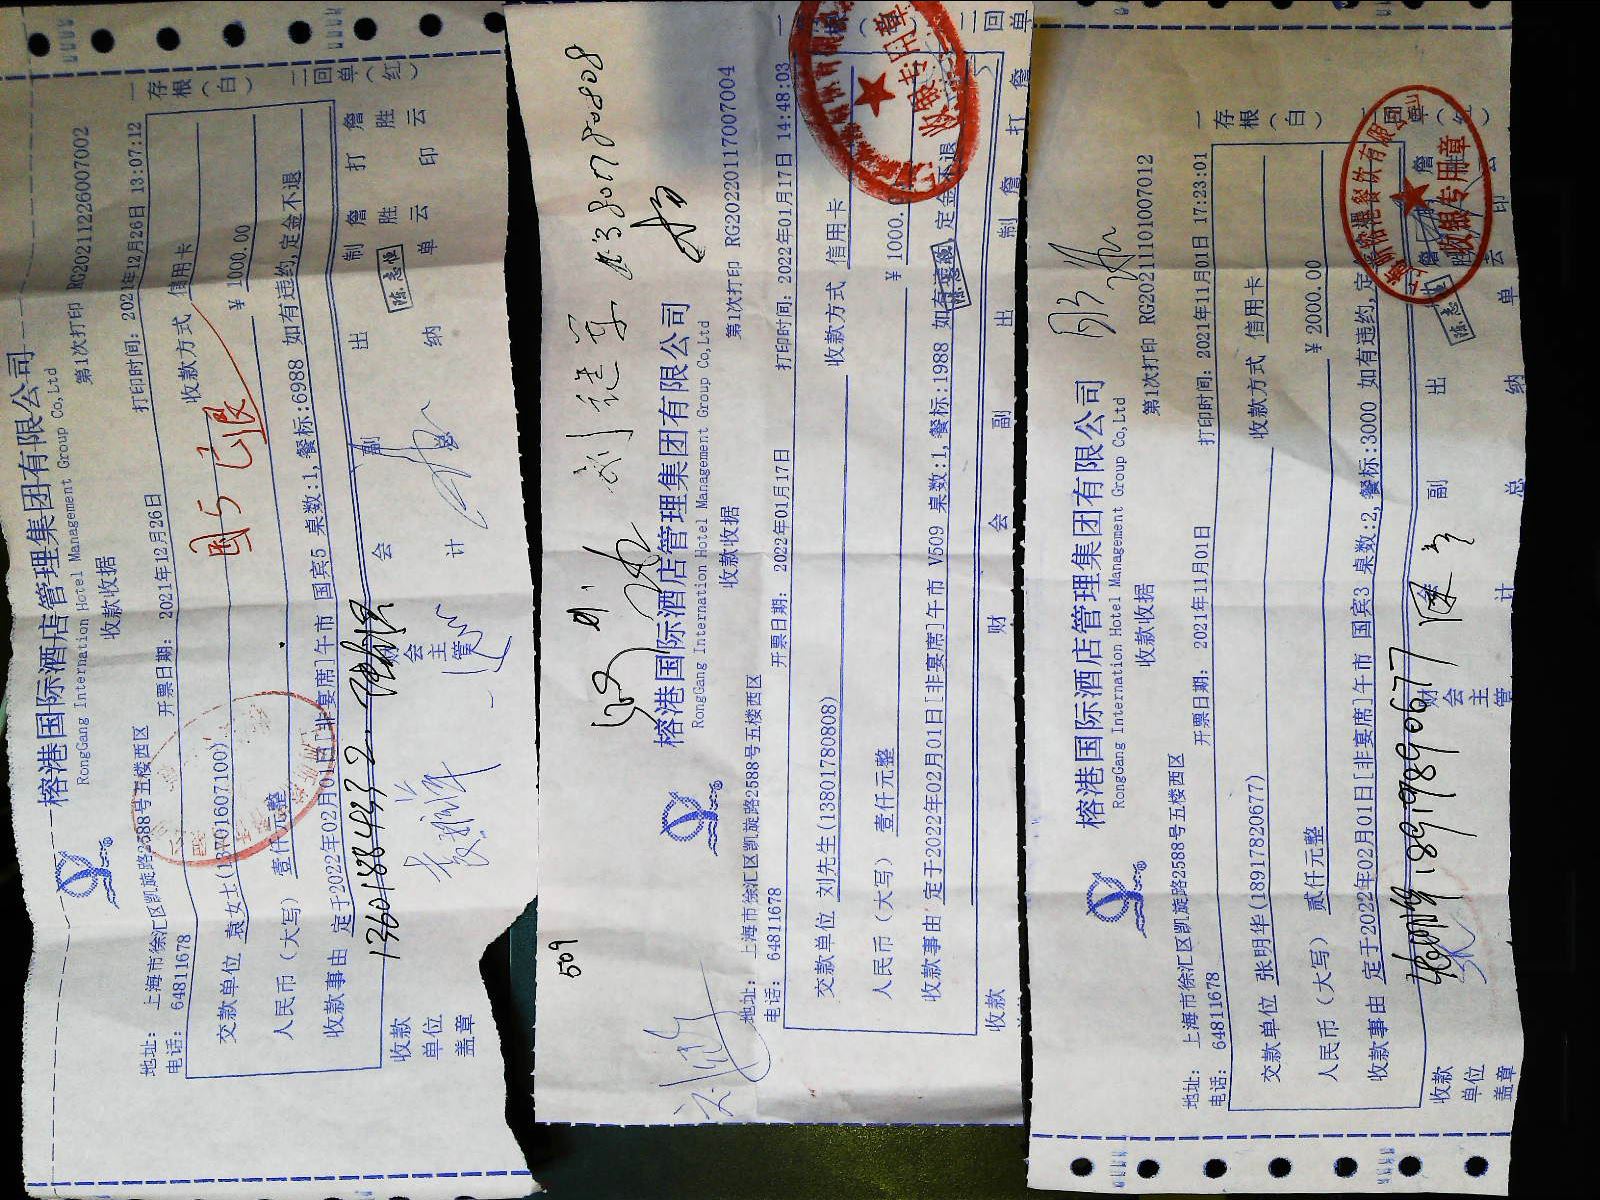 榕港国际酒店管理集团有限公司
RongGang International Hotel Management Group Co,Ltd
收款收据
第1次打印 RG20211226007002
地址： 上海市徐汇区凯旋路2588号五楼西区
电话： 64811678
开票日期： 2021年12月26日
打印时间： 2021年12月26日 13:07:12
交款单位 袁女士(13701607100)
收款方式 信用卡
人民币（大写） 壹仟元整
￥ 1000.00
收款事由 定于2022年02月01日[非宴席]午市 国宾5 桌数:1,餐标:6988 如有违约,定金不退
国5 已退
13601684432
收款单位盖章
财会主管
会计
副
出纳
制单 詹胜云
打印 詹胜云
陈志恒
一存根（白）
二回单（红）
509
刘继军 13801780808
榕港国际酒店管理集团有限公司
RongGang International Hotel Management Group Co,Ltd
收款收据
第1次打印 RG20220117007004
地址： 上海市徐汇区凯旋路2588号五楼西区
电话： 64811678
开票日期： 2022年01月17日
打印时间： 2022年01月17日 14:48:03
交款单位 刘先生(13801780808)
收款方式 信用卡
人民币（大写） 壹仟元整
￥ 1000.
收款事由 定于2022年02月01日[非宴席]午市 V509 桌数:1,餐标:1988 如有违约,定金不退
收款
财
会
副
出
制 詹
打 詹
二回单
榕港国际酒店管理集团有限公司
RongGang International Hotel Management Group Co,Ltd
收款收据
第1次打印 RG20211101007012
地址： 上海市徐汇区凯旋路2588号五楼西区
电话： 64811678
开票日期： 2021年11月01日
打印时间： 2021年11月01日 17:23:01
交款单位 张明华(18917820677)
收款方式 信用卡
人民币（大写） 贰仟元整
￥ 2000.00
收款事由 定于2022年02月01日[非宴席]午市 国宾3 桌数:2,餐标:3000 如有违约,定
18919890677
收款单位盖章
财会主管
总计
副
出纳
单
印
陈志恒
收银专用章
一存根（白）